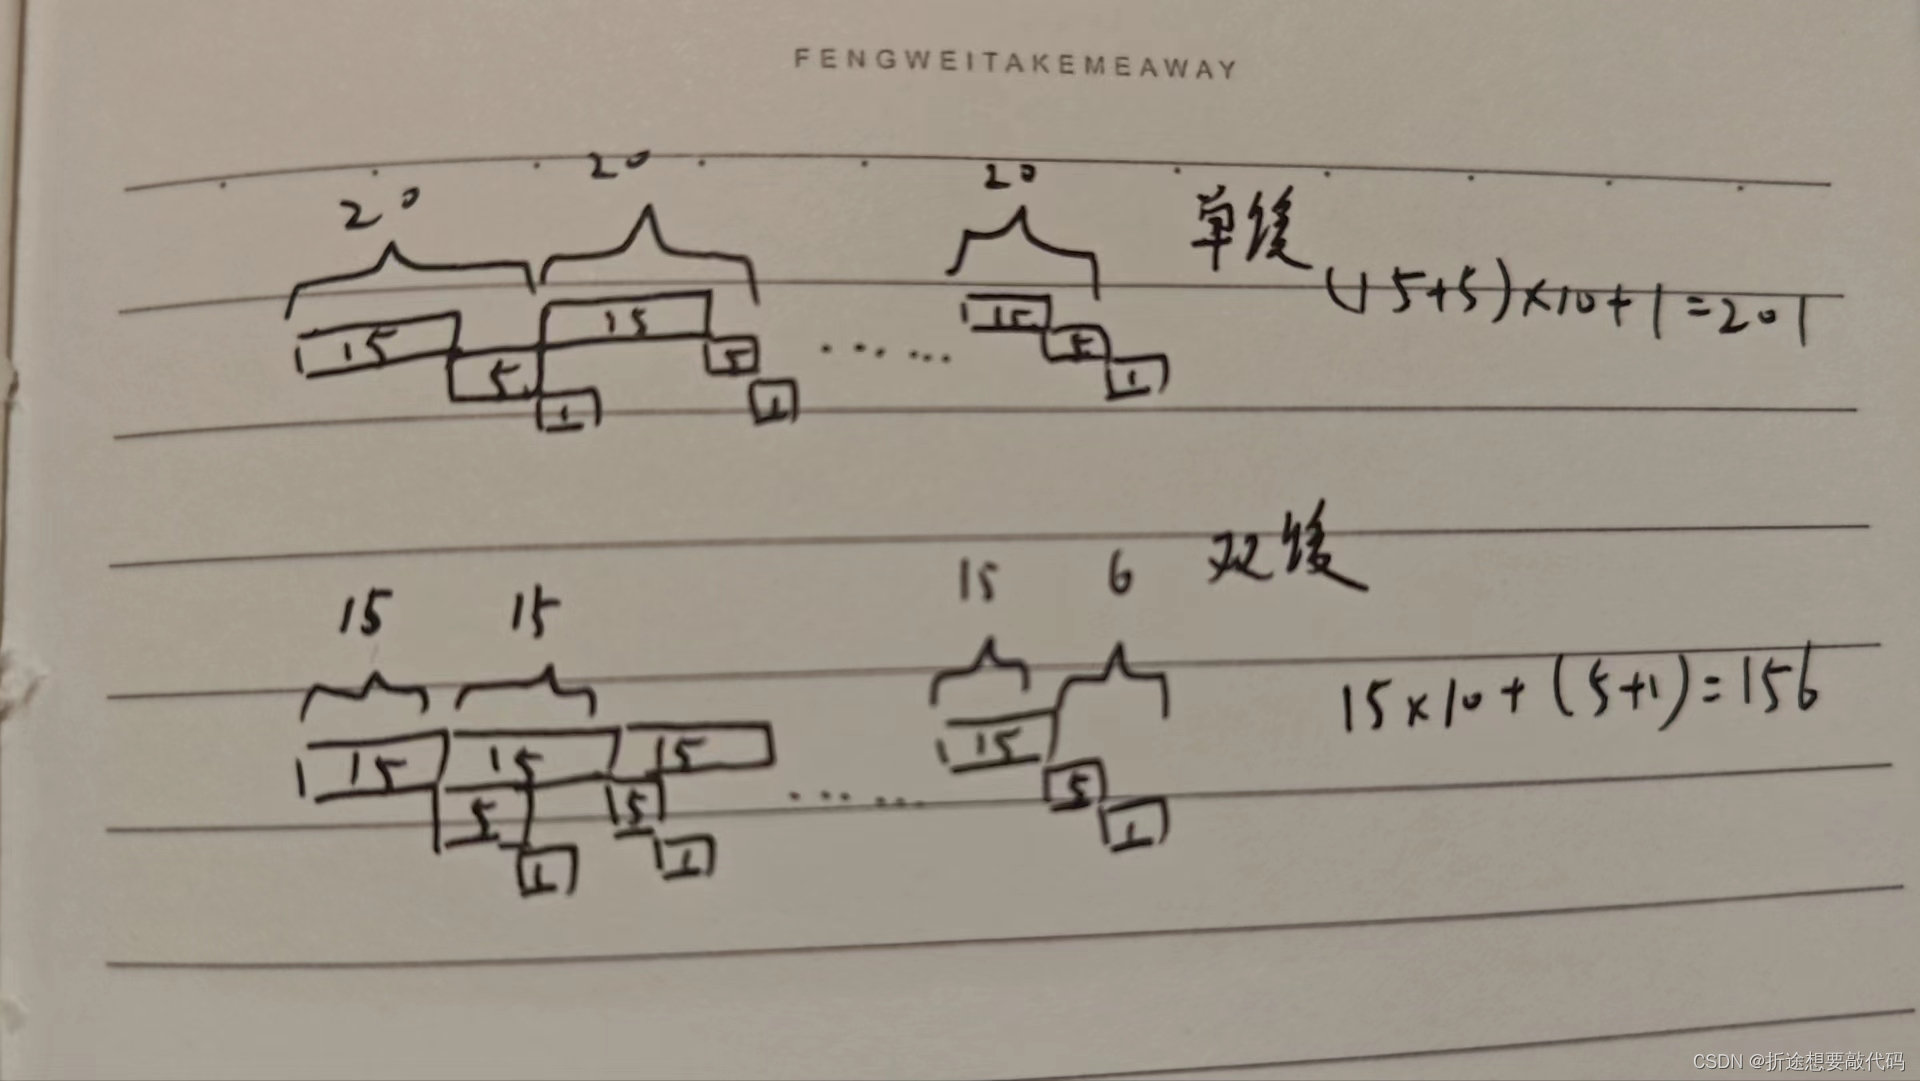 FENGWEITAKEMEAWAY
20 20 20
单缓
(15+5)×10+1=201
15 15 15
5 5 5
1 1 1
15 15 15 6
双缓
15×10+(5+1)=156
15 15 15 15
5 5 5
1 1 1
CSDN @折途想要敲代码